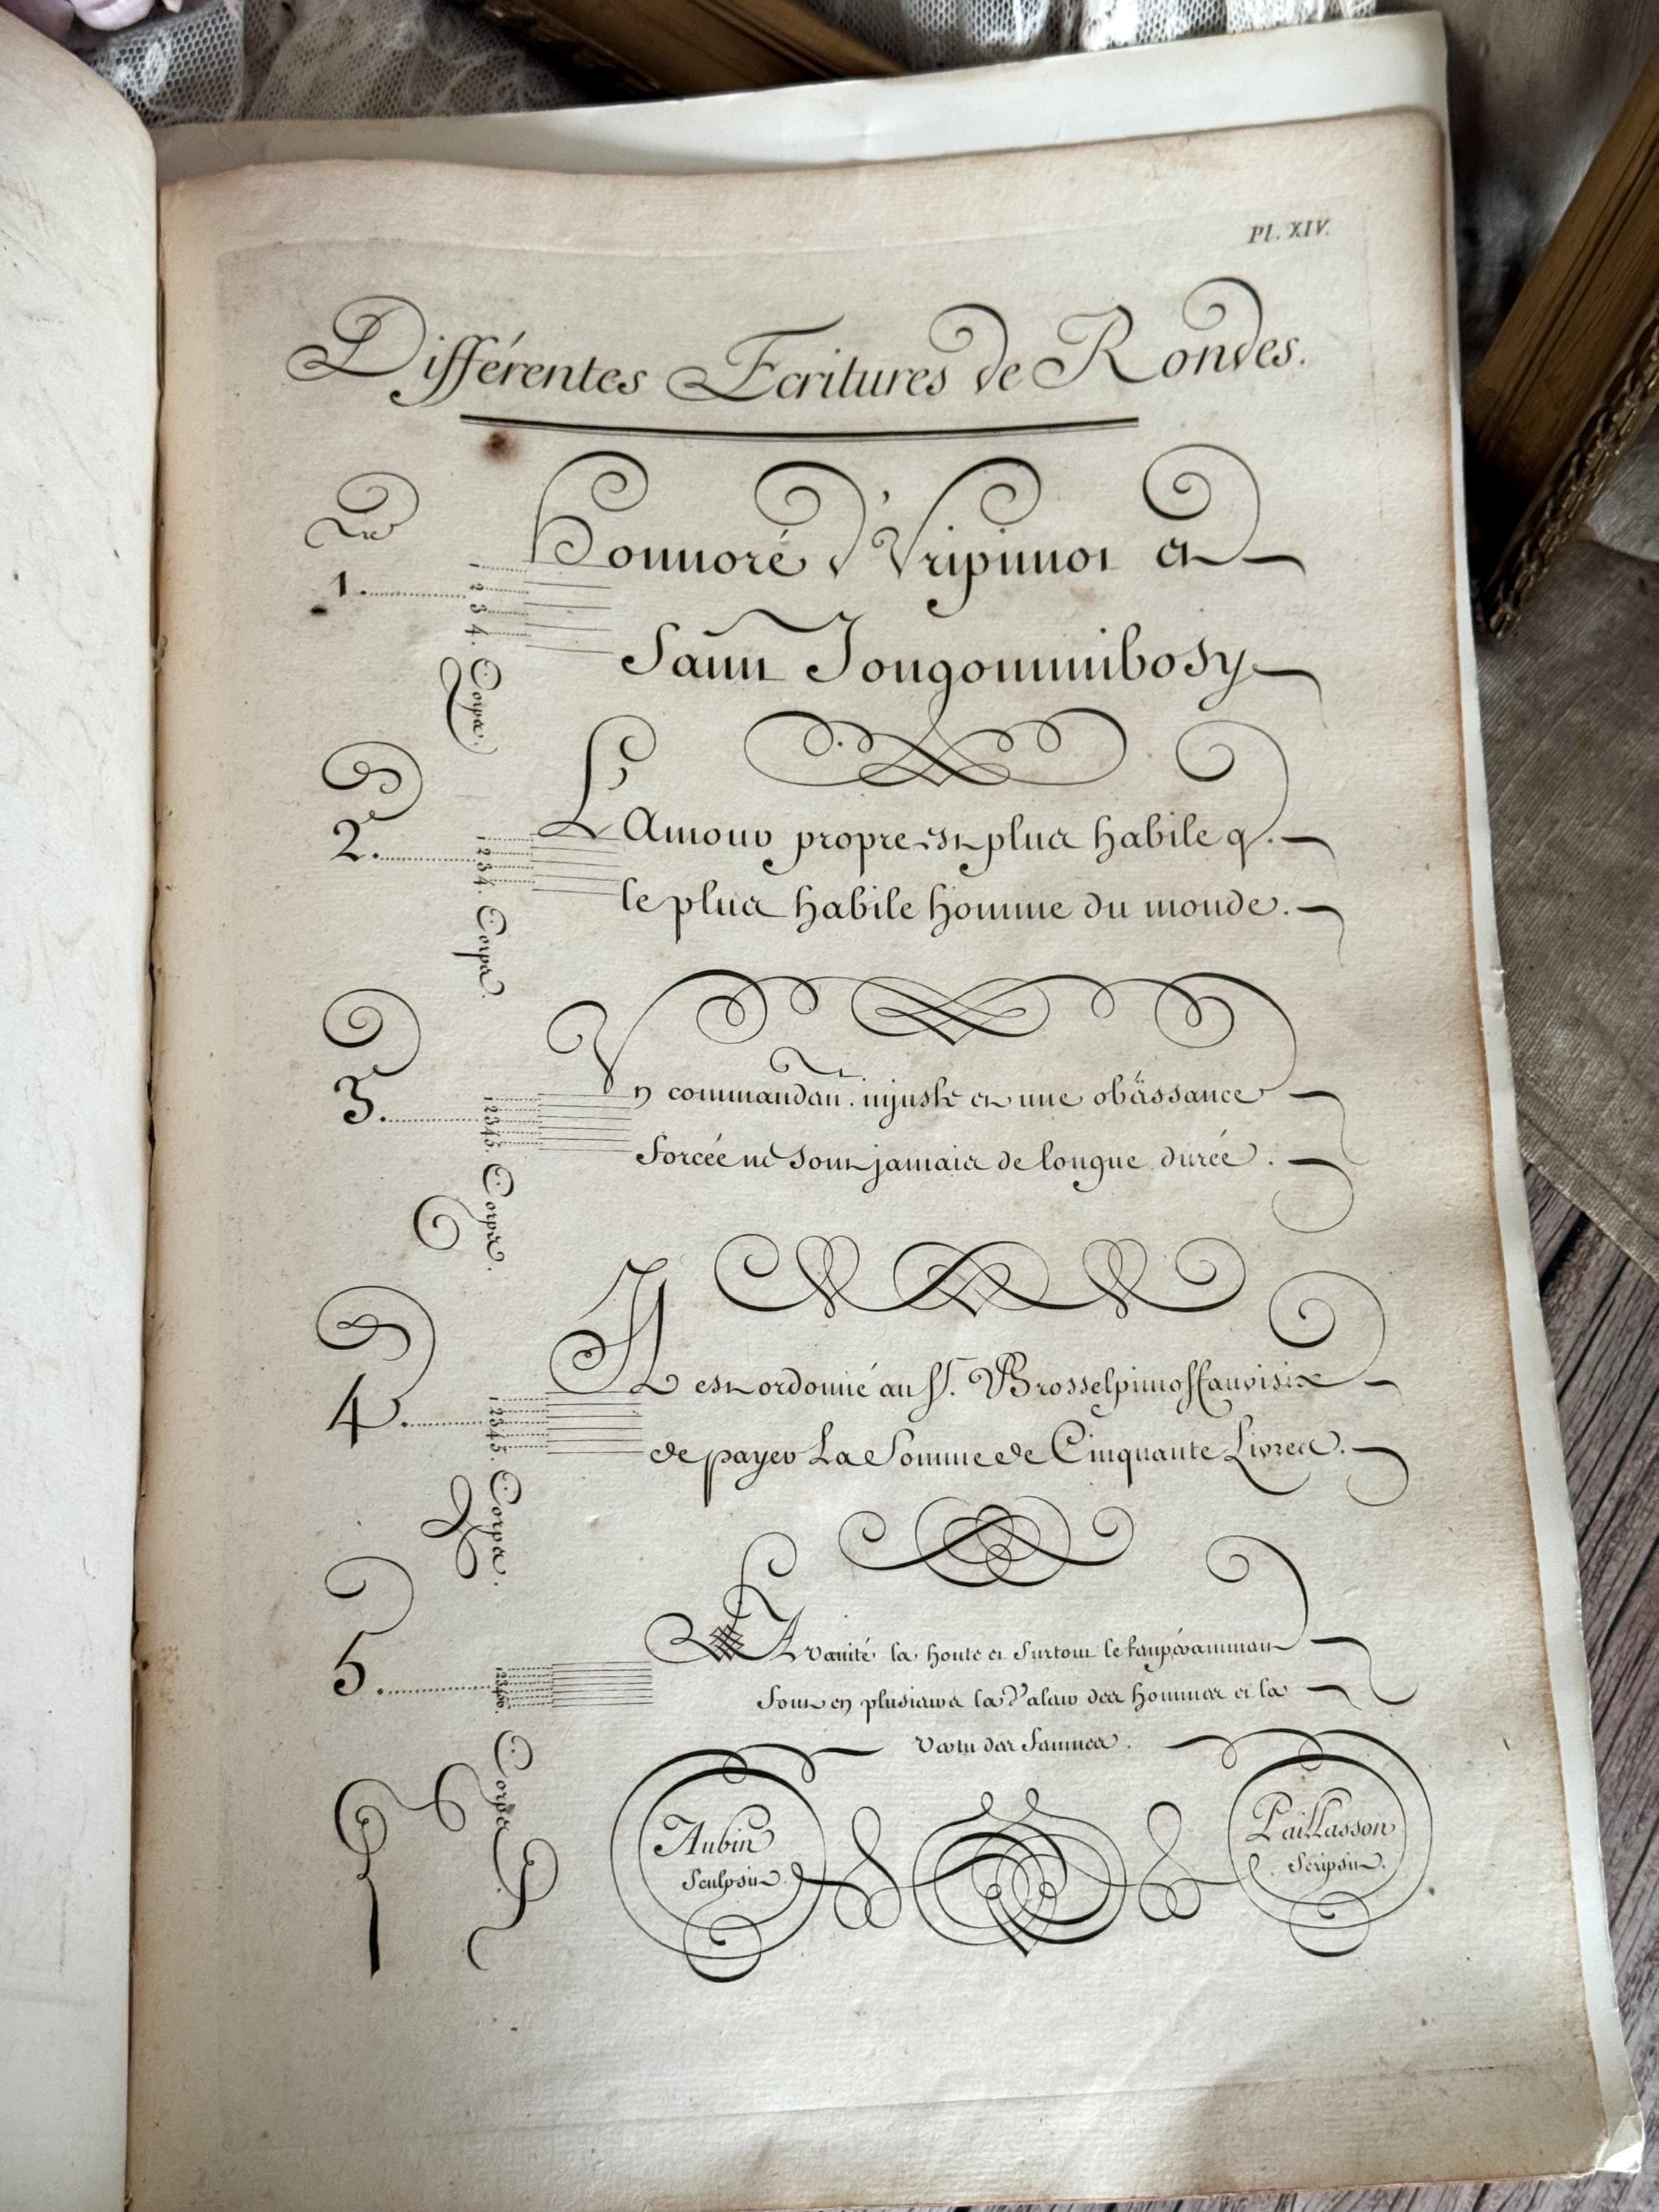 Pl. XIV.
Différentes Ecritures de Rondes.
Honnoré d'Vripinnoi et
Saint Jongomminbosy
1. 1 2 3 4. Corps.
L'Amour propre est plus habile q.
le plus habile homme du monde.
2. 1 2 3 4. Corps.
Vn commandant. injuste et une obéissance
forcée ne sont jamais de longue durée.
3. 1 2 3 4 5. Corps.
Il est ordonné au Sr.
de payer La Somme de Cinquante Livres.
4. 1 2 3 4 5. Corps.
LA vanité la honte et surtout le tempérammant
sont en plusieurs la Valeur des hommes et la
vertu des femmes.
5. 1 2 3 4 5 6. Corps.
Aubin
Sculpsit.
Paillasson
Scripsit.